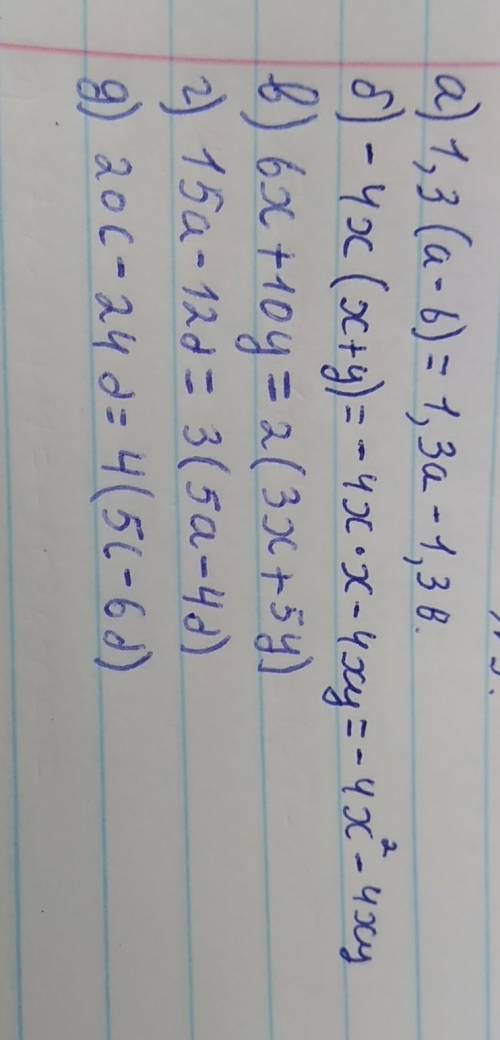 а) 1,3(a-b)=1,3a-1,3b.
б) -4x(x+y)=-4x·x-4xy=-4x²-4xy
в) 6x+10y=2(3x+5y)
г) 15a-12d=3(5a-4d)
д) 20c-24d=4(5c-6d)